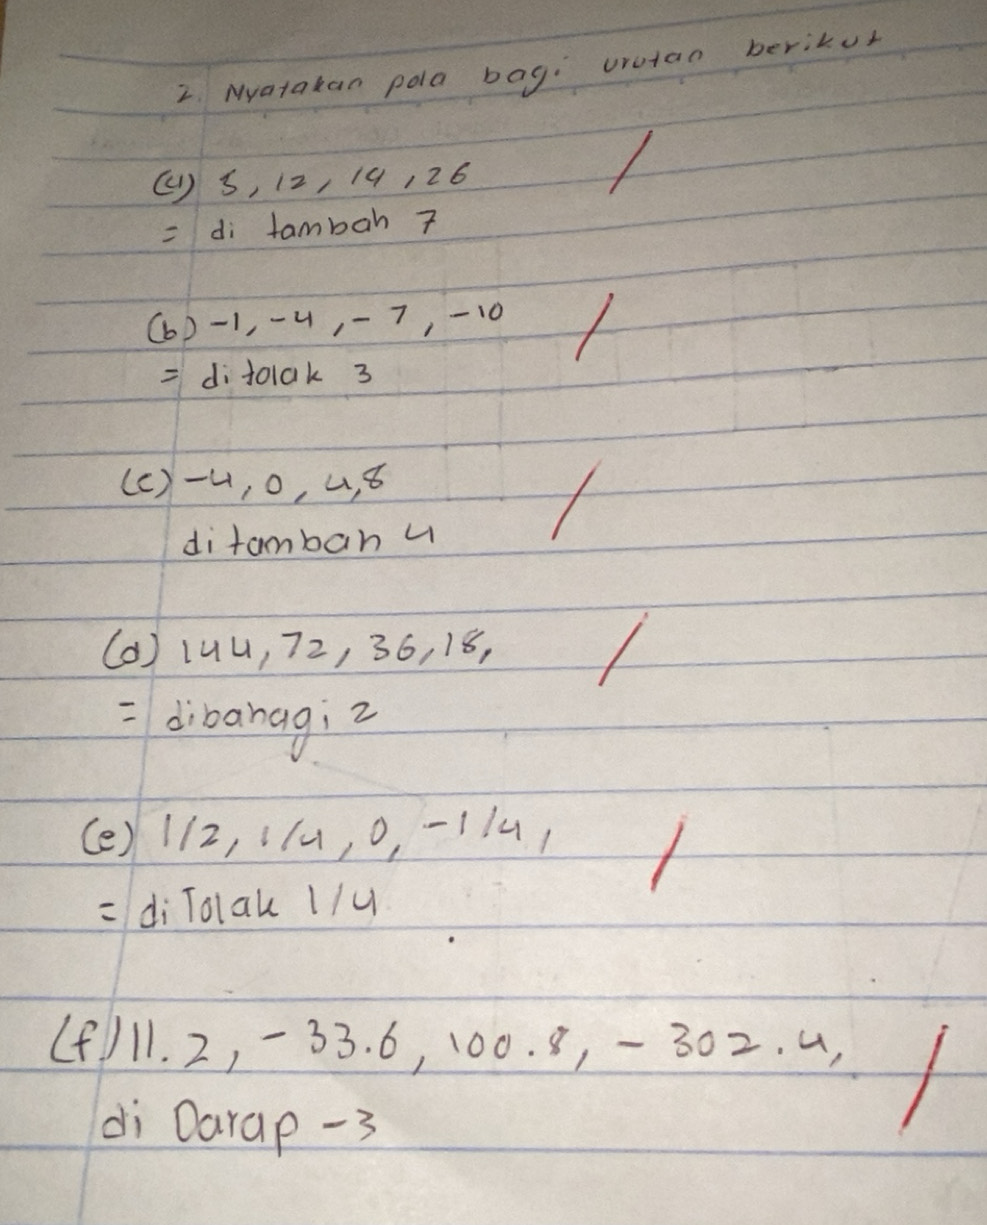 2. Nyatakan pola bagi urutan berikut
(a) 5, 12, 19, 26
= di tambah 7
(b) -1, -4, -7, -10
= di tolak 3
(c) -4, 0, 4, 8
di tambah 4
(d) 144, 72, 36, 18,
= dibahagi 2
(e) 1/2, 1/4, 0, -1/4,
= di Tolak 1/4
(f) 11.2, -33.6, 100.8, -302.4,
di Darap -3